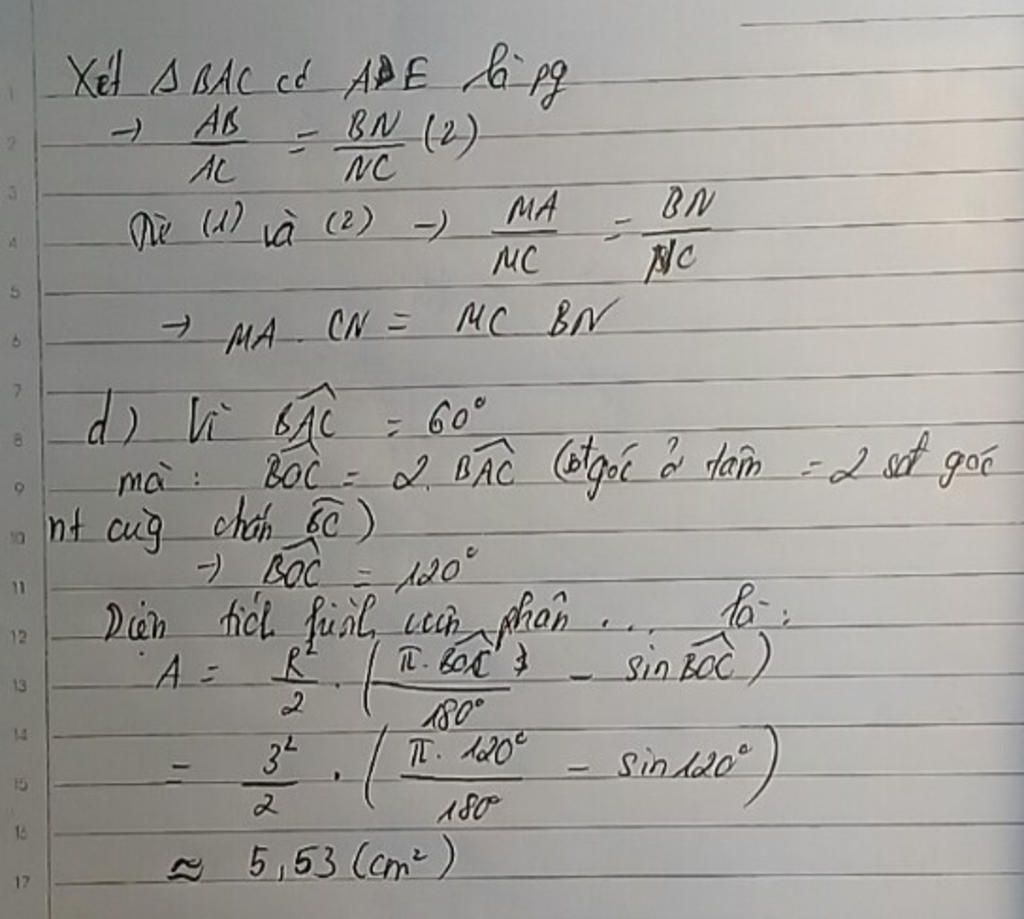 Xét Δ BAC có AE là pg
→ AB/AC = BN/NC (2)
Từ (1) và (2) → MA/MC = BN/NC
→ MA . CN = MC BN
d) Vì \widehat{BAC} = 60°
mà : \widehat{BOC} = 2. \widehat{BAC} (góc ở tâm = 2 sđ góc
nt cùg chắn \widehat{BC})
→ \widehat{BOC} = 120°
Diện tích hình viên phân ... là :
A = R²/2 . (π. \widehat{BOC}/180° - sin \widehat{BOC})
= 3²/2 . (π. 120°/180° - sin 120°)
≈ 5,53 (cm²)
1
2
3
4
5
6
7
8
9
10
11
12
13
14
15
16
17